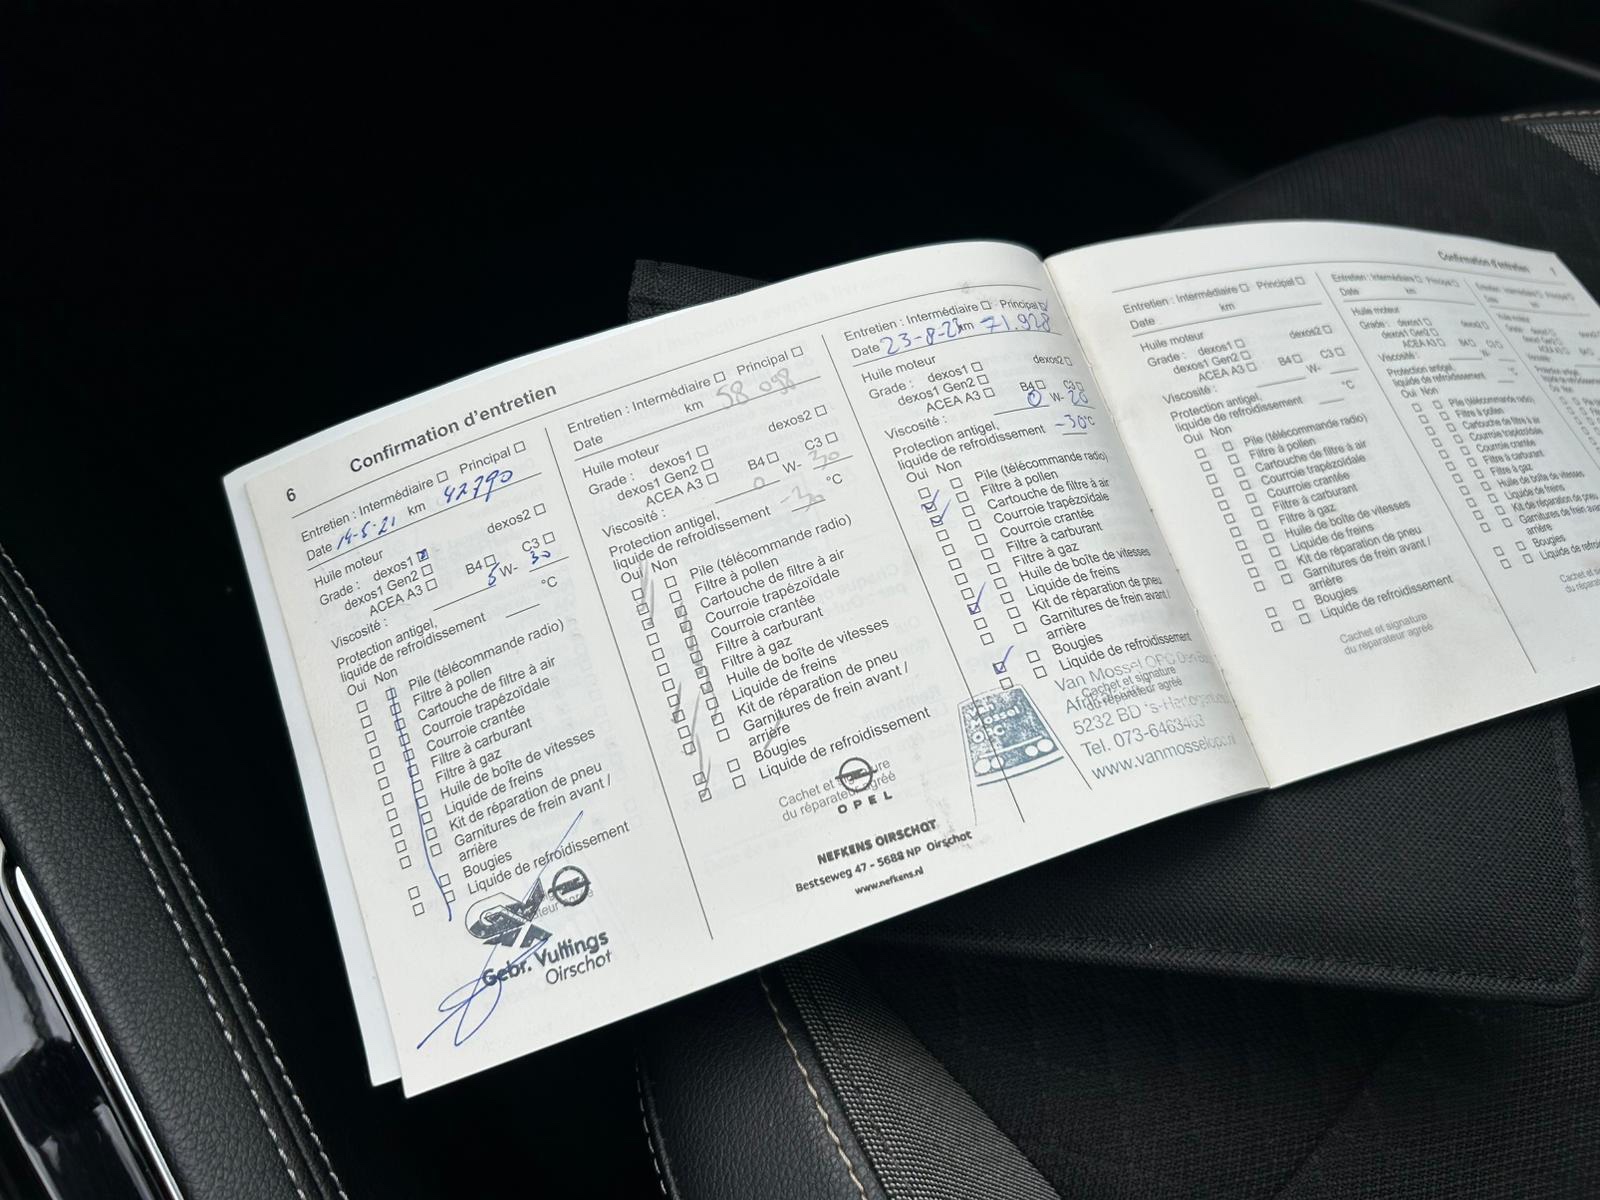 6
Confirmation d'entretien
Entretien : Intermédiaire Principal
Date 14-5-21 km 42790
Huile moteur
Grade : dexos1 dexos2
dexos1 Gen2
ACEA A3 B4 C3
Viscosité : 5 W- 30
Protection antigel,
liquide de refroidissement °C
Oui Non
Pile (télécommande radio)
Filtre à pollen
Cartouche de filtre à air
Courroie trapézoïdale
Courroie crantée
Filtre à carburant
Filtre à gaz
Huile de boîte de vitesses
Liquide de freins
Kit de réparation de pneu
Garnitures de frein avant /
arrière
Bougies
Liquide de refroidissement
Gebr. Vultings
Oirschot
Entretien : Intermédiaire Principal
Date km 58 098
Huile moteur
Grade : dexos1 dexos2
dexos1 Gen2
ACEA A3 B4 C3
Viscosité : 0 W-
Protection antigel,
liquide de refroidissement °C
Oui Non
Pile (télécommande radio)
Filtre à pollen
Cartouche de filtre à air
Courroie trapézoïdale
Courroie crantée
Filtre à carburant
Filtre à gaz
Huile de boîte de vitesses
Liquide de freins
Kit de réparation de pneu
Garnitures de frein avant /
arrière
Bougies
Liquide de refroidissement
Cachet et signature
du réparateur agréé
OPEL
NEFKENS OIRSCHOT
Bestseweg 47 - 5688 NP Oirschot
www.nefkens.nl
Entretien : Intermédiaire Principal
Date 23-8-23 km 71.928
Huile moteur
Grade : dexos1 dexos2
dexos1 Gen2
ACEA A3 B4 C3
Viscosité : 0 W- 20
Protection antigel,
liquide de refroidissement -30°C
Oui Non
Pile (télécommande radio)
Filtre à pollen
Cartouche de filtre à air
Courroie trapézoïdale
Courroie crantée
Filtre à carburant
Filtre à gaz
Huile de boîte de vitesses
Liquide de freins
Kit de réparation de pneu
Garnitures de frein avant /
arrière
Bougies
Liquide de refroidissement
Van Mossel OPC Den
Cachet et signature
du réparateur agréé
5232 BD 's-Hertogenbosch
Tel. 073-6463463
www.vanmosselopc.nl
van
Mossel
Confirmation d'entretien 7
Entretien : Intermédiaire Principal
Date km
Huile moteur
Grade : dexos1 dexos2
dexos1 Gen2
ACEA A3 B4 C3
Viscosité : W-
Protection antigel,
liquide de refroidissement °C
Oui Non
Pile (télécommande radio)
Filtre à pollen
Cartouche de filtre à air
Courroie trapézoïdale
Courroie crantée
Filtre à carburant
Filtre à gaz
Huile de boîte de vitesses
Liquide de freins
Kit de réparation de pneu
Garnitures de frein avant /
arrière
Bougies
Liquide de refroidissement
Cachet et signature
du réparateur agréé
Entretien : Intermédiaire Principal
Date km
Huile moteur
Grade : dexos1 dexos2
dexos1 Gen2
ACEA A3 B4 C3
Viscosité : W-
Protection antigel,
liquide de refroidissement °C
Oui Non
Pile (télécommande radio)
Filtre à pollen
Cartouche de filtre à air
Courroie trapézoïdale
Courroie crantée
Filtre à carburant
Filtre à gaz
Huile de boîte de vitesses
Liquide de freins
Kit de réparation de pneu
Garnitures de frein avant /
arrière
Bougies
Liquide de